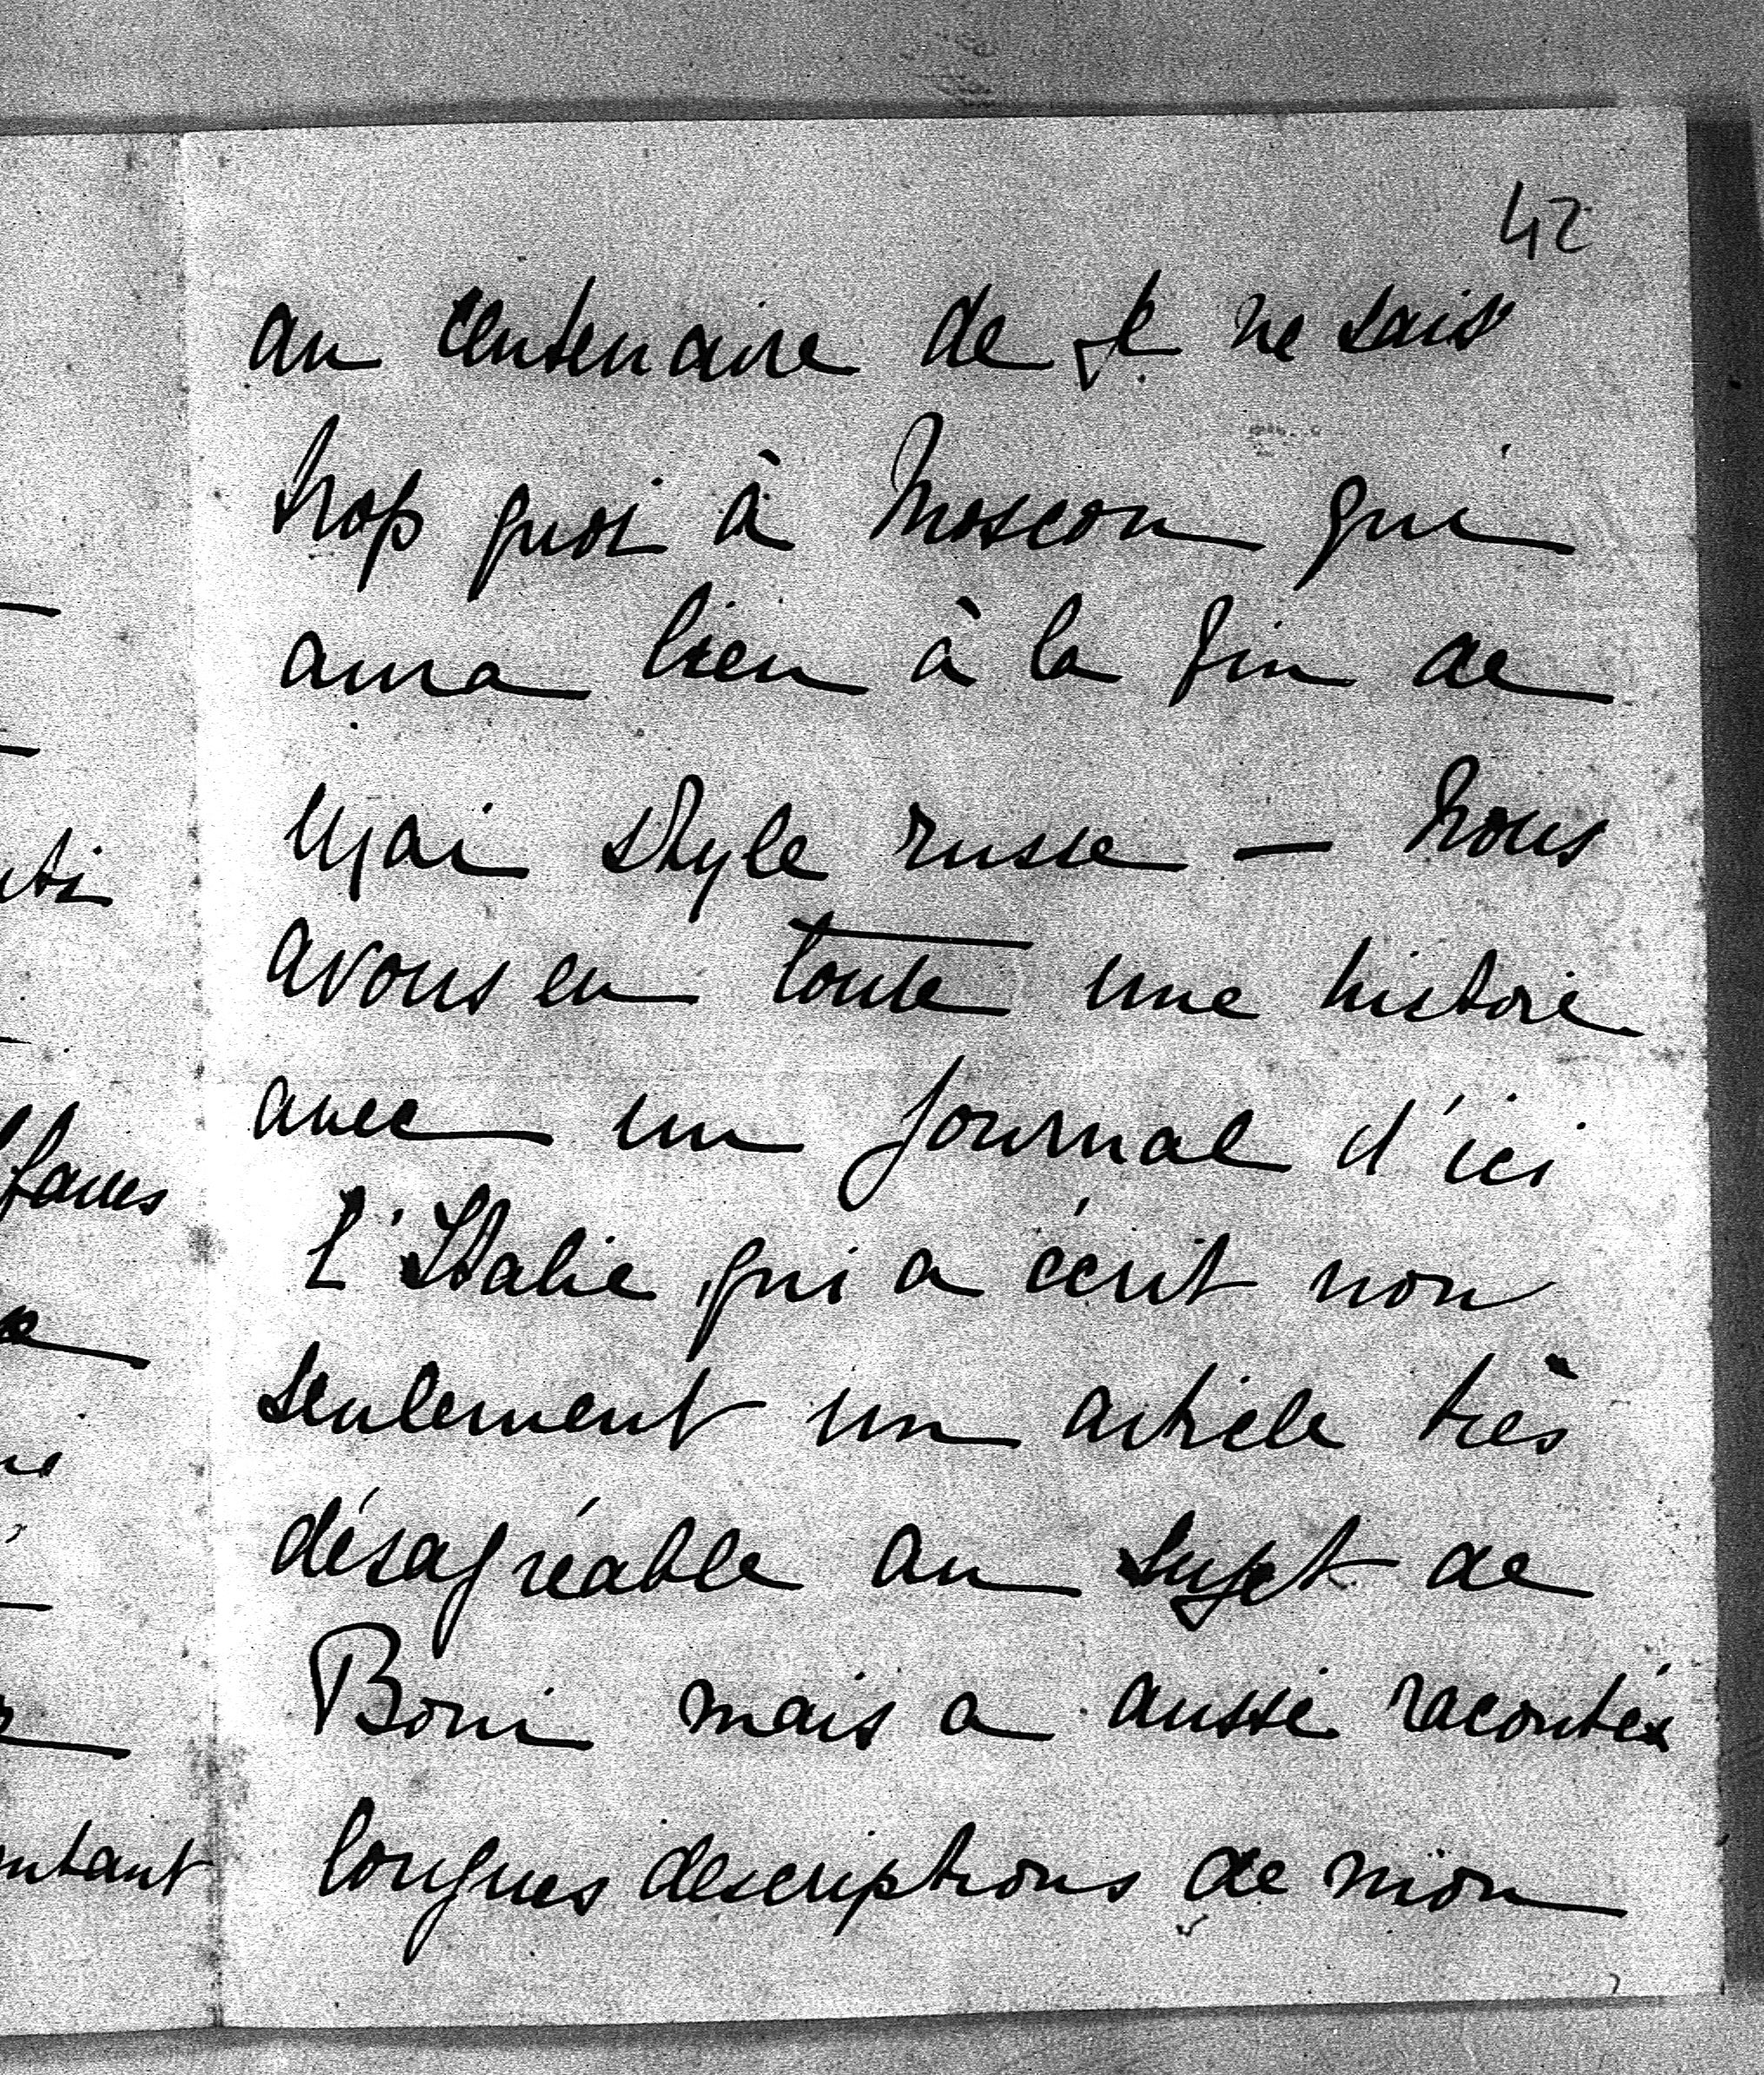 42
au centenaire de je ne sais
trop quoi à Moscou qui
aura lieu à la fin de
Mai style russe — Nous
avons eu toute une histoire
avec un journal d'ici
L'Italie qui a écrit non
seulement un article très
désagréable au sujet de
Boni mais a aussi racontés
longues descriptions de mon